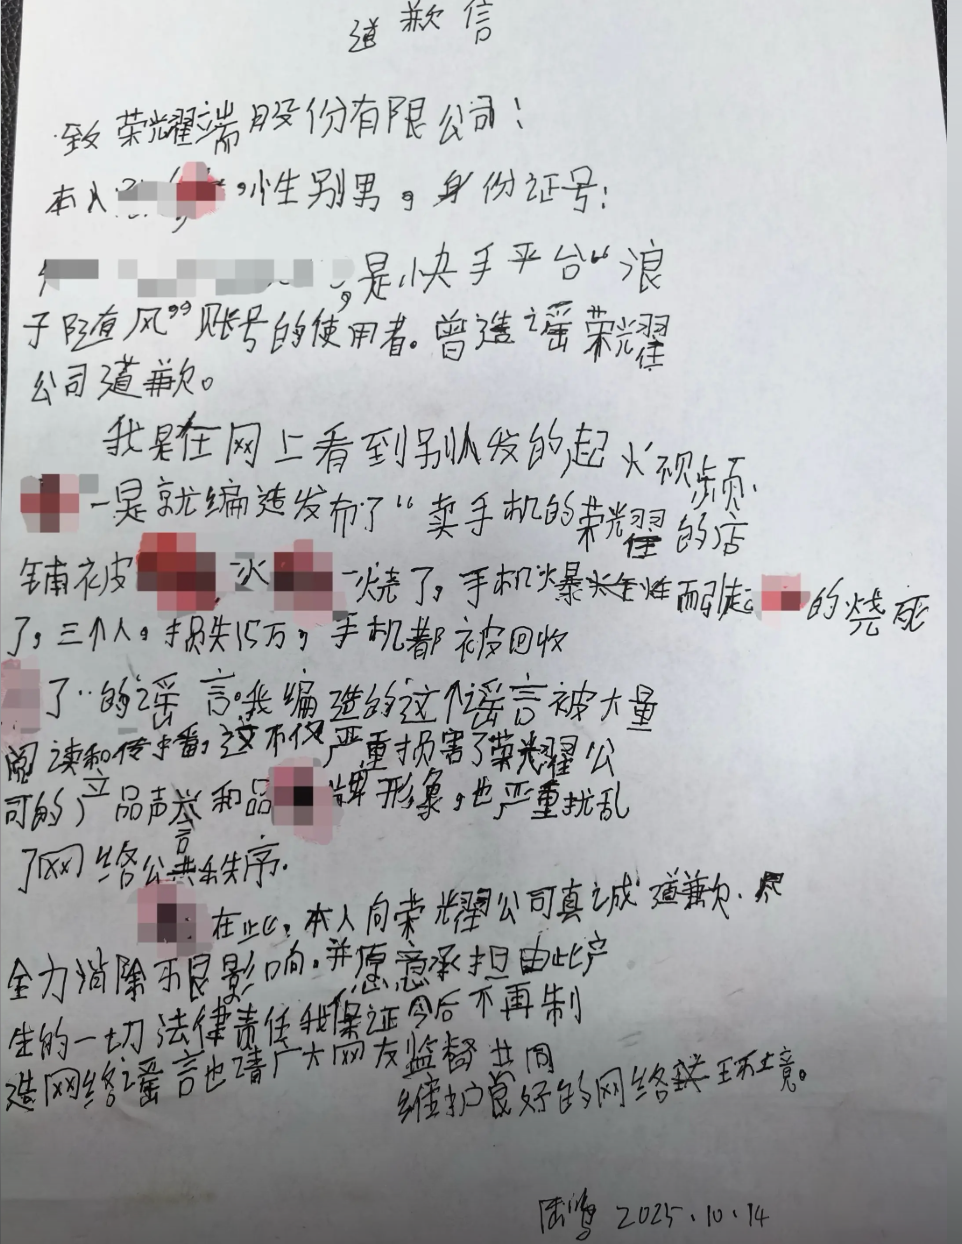 道歉信
致荣耀端股份有限公司：
本人,性别男,身份证号：
,是快手平台“浪
子随风”账号的使用者。曾造谣荣耀
公司道歉。
我是在网上看到别人发的起火视频.
是就编造发布了“卖手机的荣耀的店
铺被火烧了,手机爆而引起的烧死
了,三个人,损失15万,手机都被回收
了”的谣言。我编造的这个谣言被大量
阅读和传播,这不仅严重损害了荣耀公
司的产品声誉和品牌形象,也严重扰乱
了网络公共秩序.
在此,本人向荣耀公司真诚道歉.尽
全力消除不良影响,并愿意承担由此产
生的一切法律责任我保证今后不再制
造网络谣言也请广大网友监督共同
维护良好的网络环境。
2025.10.14